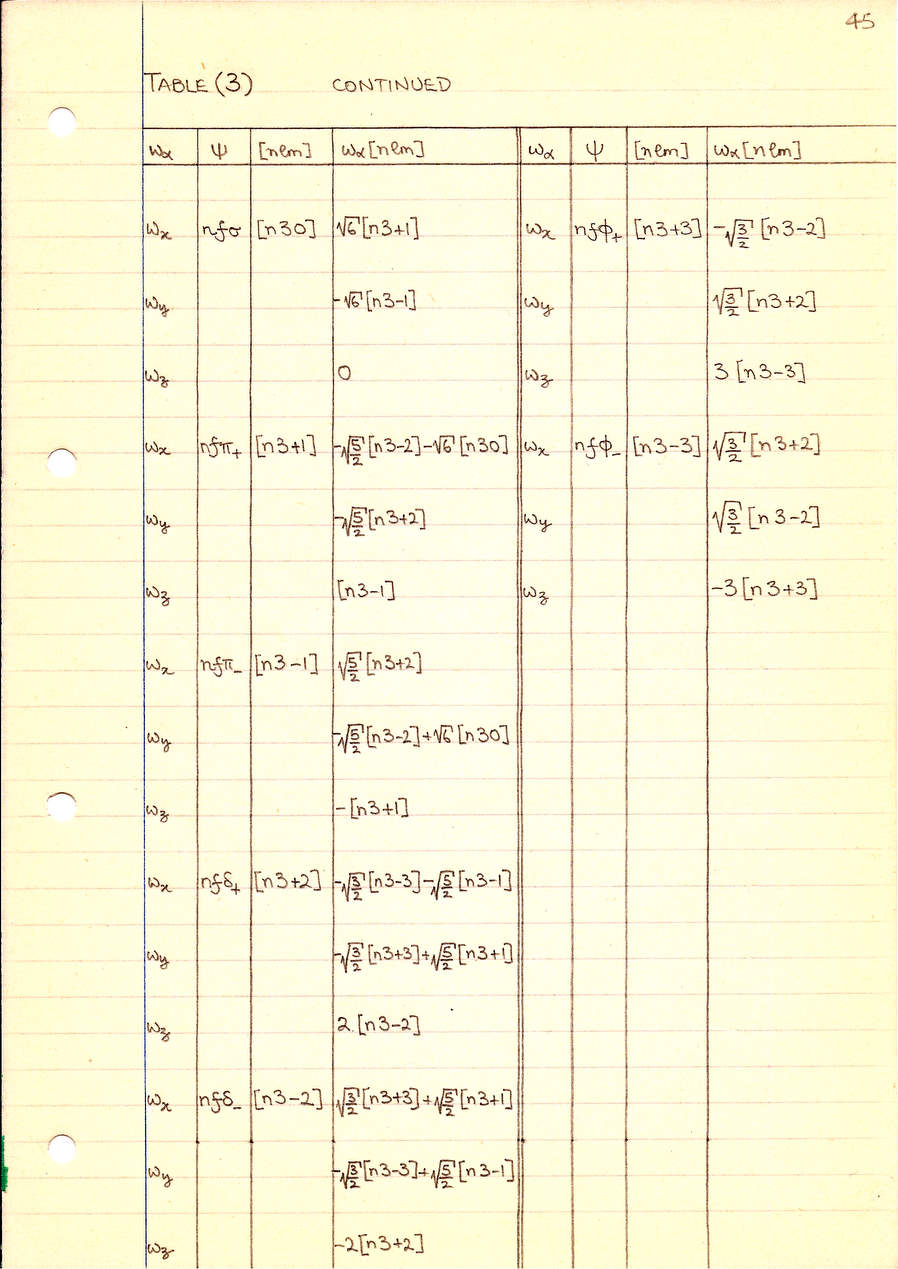 45
TABLE (3) CONTINUED
ωα ψ [nlm] ωα[nlm] ωα ψ [nlm] ωα[nlm]
ωx nfσ [n30] √6[n3+1] ωx nfφ+ [n3+3] -√3/2 [n3-2]
ωy -√6[n3-1] ωy √3/2 [n3+2]
ωz 0 ωz 3 [n3-3]
ωx nfπ+ [n3+1] -√5/2[n3-2]-√6[n30] ωx nfφ- [n3-3] √3/2 [n3+2]
ωy -√5/2[n3+2] ωy √3/2 [n3-2]
ωz [n3-1] ωz -3[n3+3]
ωx nfπ- [n3-1] √5/2[n3+2]
ωy -√5/2[n3-2]+√6[n30]
ωz -[n3+1]
ωx nfδ+ [n3+2] -√3/2[n3-3]-√5/2[n3-1]
ωy -√3/2[n3+3]+√5/2[n3+1]
ωz 2[n3-2]
ωx nfδ- [n3-2] √3/2[n3+3]+√5/2[n3+1]
ωy -√3/2[n3-3]+√5/2[n3-1]
ωz -2[n3+2]